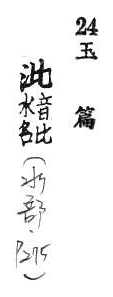 24 玉篇
沘 音比水名 (水部,